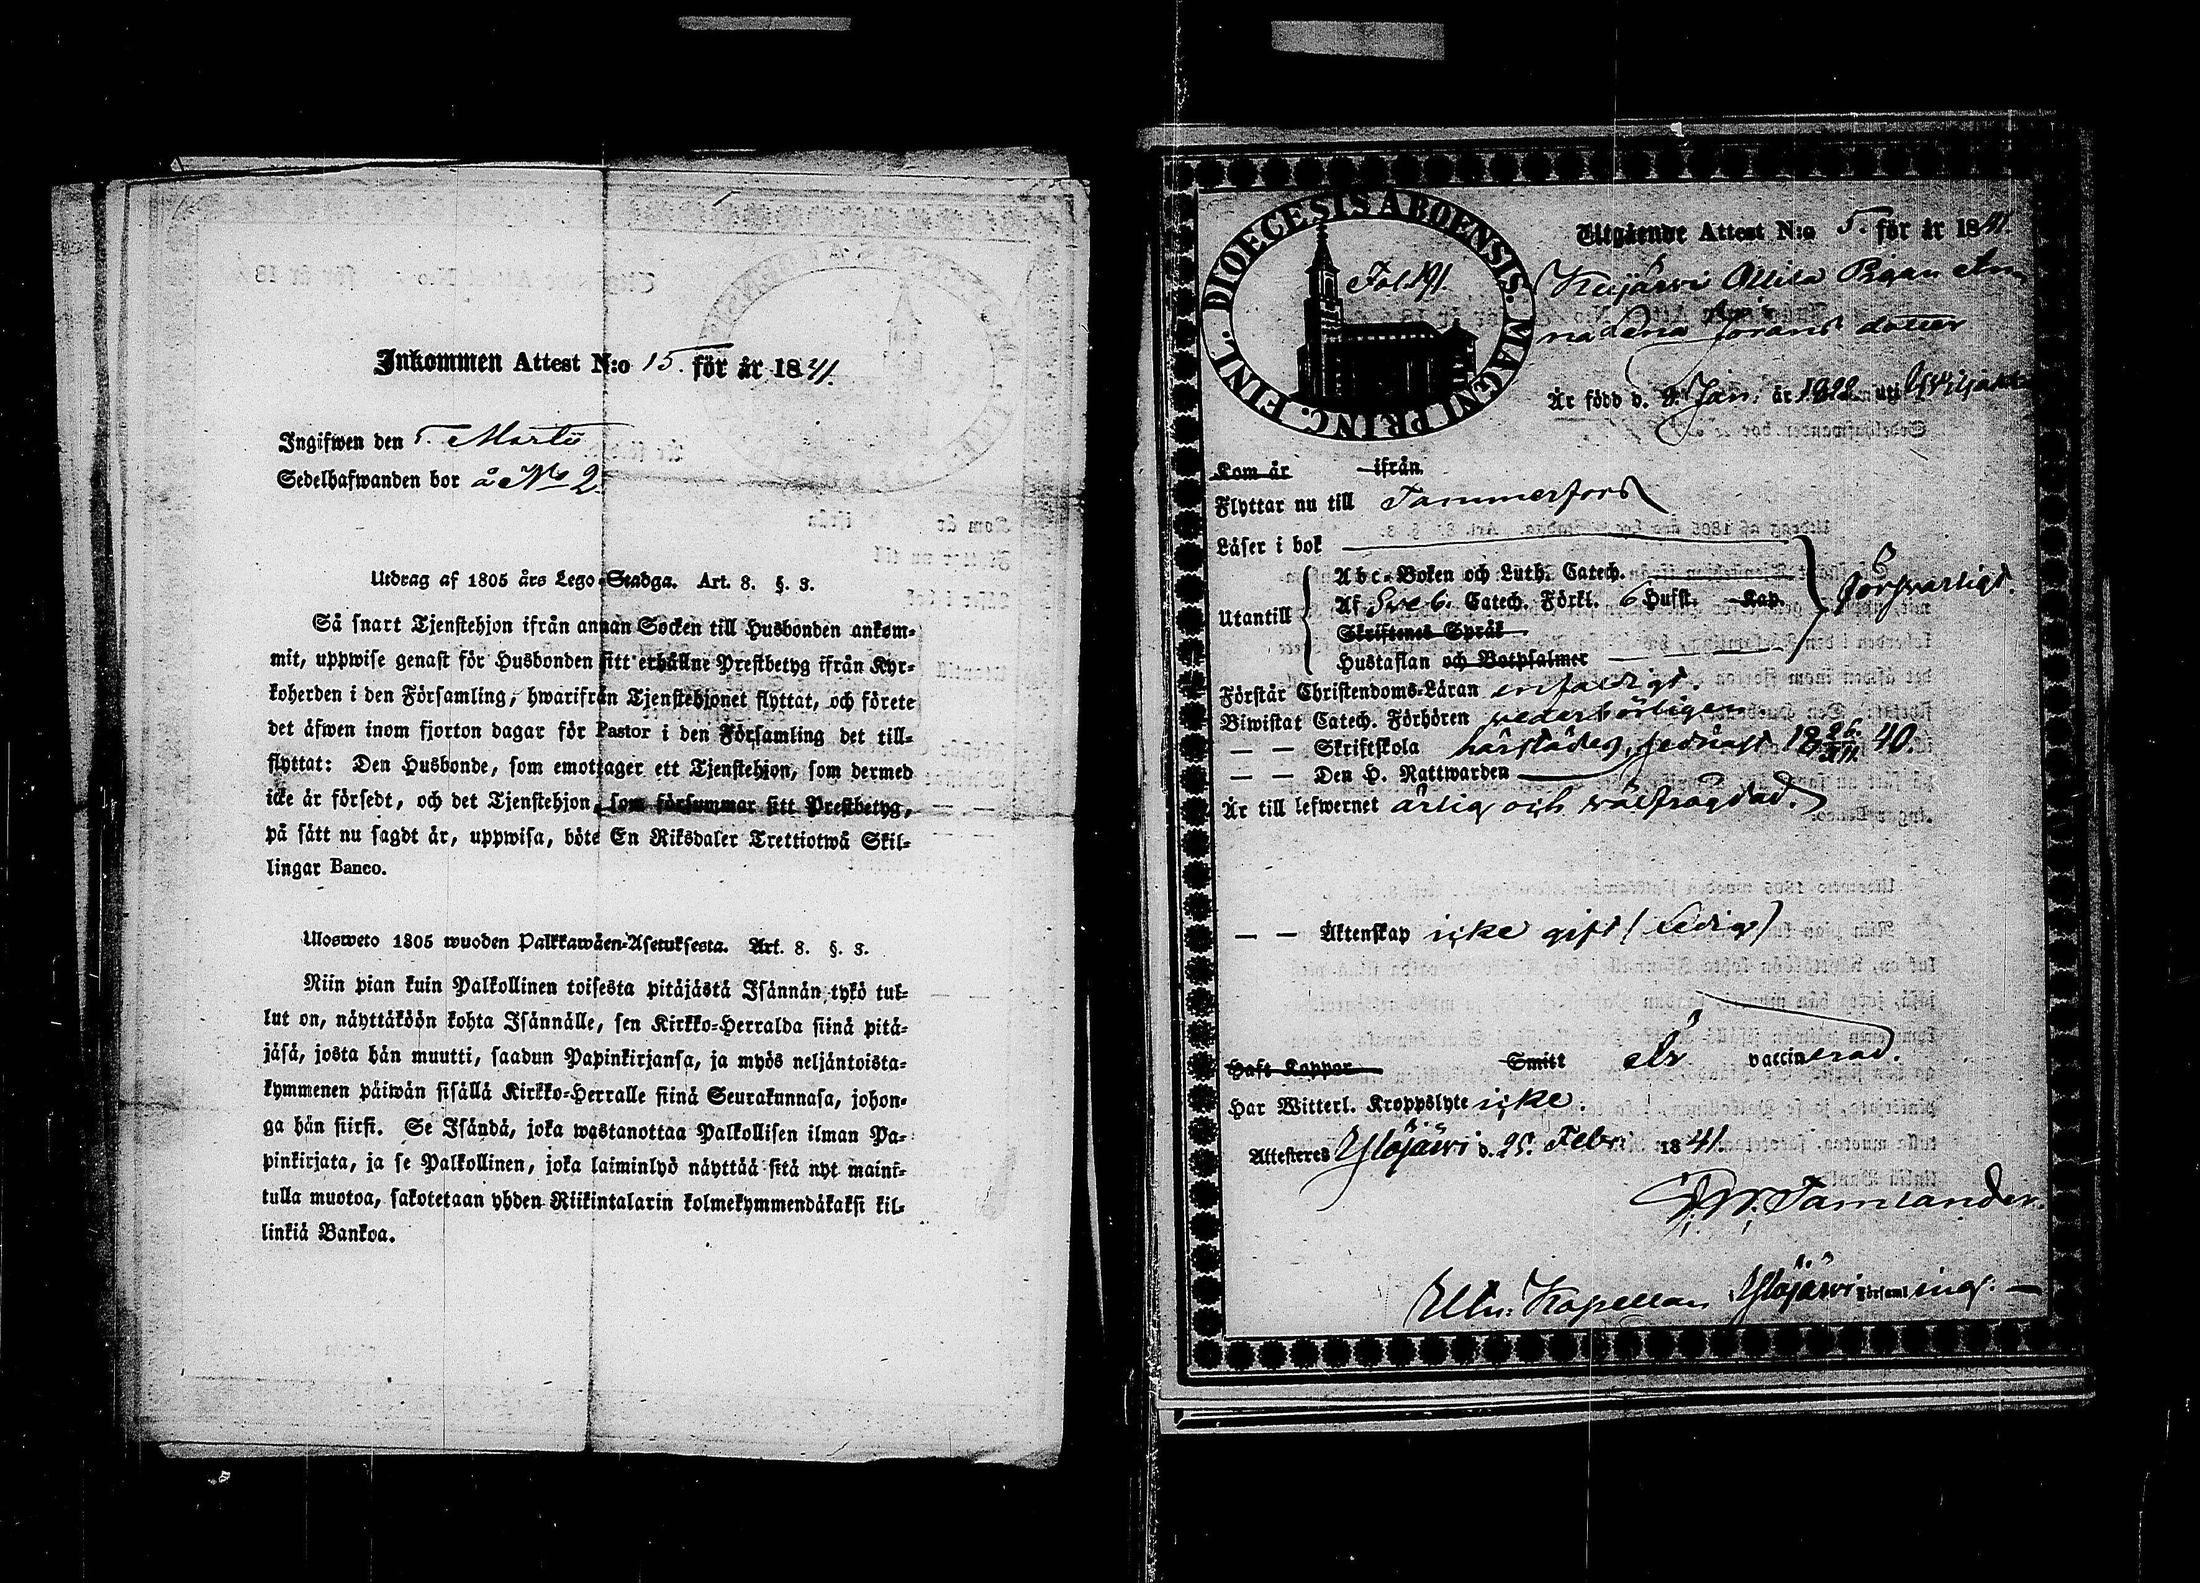 Inkommen Attest N:o 15. för år 1841.
Ingifwen den 5. Martii
Sedelhafwanden bor å No 2.
Utdrag af 1805 års Lego-Stadga. Art. 8. §. 3.
Så snart Tjenstehjon ifrån annan Socken till Husbonden ankom-
mit, uppwise genast för Husbonden sitt erhållne Prestbetyg ifrån Kyr-
koherden i den Församling, hwarifrån Tjenstehjonet flyttat, och förete
det äfwen inom fjorton dagar för Pastor i den Församling det till-
flyttat: Den Husbonde, som emottager ett Tjenstehjon, som dermed
icke är försedt, och det Tjenstehjon, som försummar sitt Prestbetyg,
på sätt nu sagdt är, uppwisa, böte En Riksdaler Trettiotwå Skil-
lingar Banco.
Ulosweto 1805 wuoden Palkkawäen-Asetuksesta. Art. 8. §. 3.
Niin pian kuin Palkollinen toisesta pitäjästä Isännän tykö tul-
lut on, näyttäköön kohta Isännälle, sen Kirkko-Herralda siinä pitä-
jäsä, josta hän muutti, saadun Papinkirjansa, ja myös neljäntoista-
kymmenen päiwän sisällä Kirkko-Herralle siinä Seurakunnasa, johon-
ga hän siirsi. Se Isändä, joka wastanottaa Palkollisen ilman Pa-
pinkirjata, ja se Palkollinen, joka laiminlyö näyttää sitä nyt maini-
tulla muotoa, sakotetaan yhden Riikintalarin kolmekymmendäkaksi kil-
linkiä Bankoa.
DIOECESIS ABOENSIS. MAGNI PRINC. FINL.
Fol. 191.
Utgående Attest N:o 5. för år 1841.
Keijärvi Ollila Pigan An
na Lena Jörans dotter
Är född d. 9. Jan. år 1822 uti Ylöjärvi
Kom år ifrån
Flyttar nu till Tammerfors
Läser i bok
Utantill
Abc-Boken och Luth. Catech.
Af Sveb. Catech. Förkl. 6 Hufst. Kap.
Skriftenes Språk
Hustaflan och Botpsalmer
försvarligt.
Förstår Christendoms-Läran enfaldigt.
Biwistat Catech. Förhören vederbörligen
— — Skriftskola härstädes, sednast 18 26/XII 40.
— — Den H. Nattwarden
Är till lefwernet ärlig och välfrägdad.
— — Äktenskap icke gift (ledig)
Haft Koppor Smitt Är vaccinerad.
Har Witterl. Kroppslyte icke.
Attesteres Ylöjärvi d. 25. Febr. 1841.
G. W. Tamlander.
Kapellan i Ylöjärvi Församlings. —